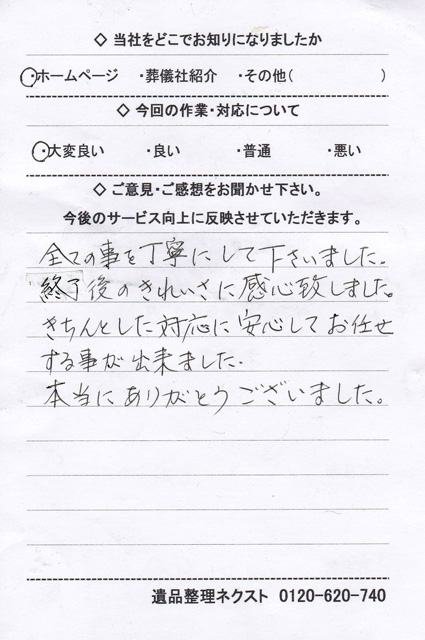 ◇ 当社をどこでお知りになりましたか
・ホームページ ・葬儀社紹介 ・その他( )
◇ 今回の作業・対応について
・大変良い ・良い ・普通 ・悪い
◇ ご意見・ご感想をお聞かせ下さい。
今後のサービス向上に反映させていただきます。
全ての事を丁寧にして下さいました。
終了後のきれいさに感心致しました。
きちんとした対応に安心してお任せ
する事が出来ました。
本当にありがとうございました。
遺品整理ネクスト 0120-620-740